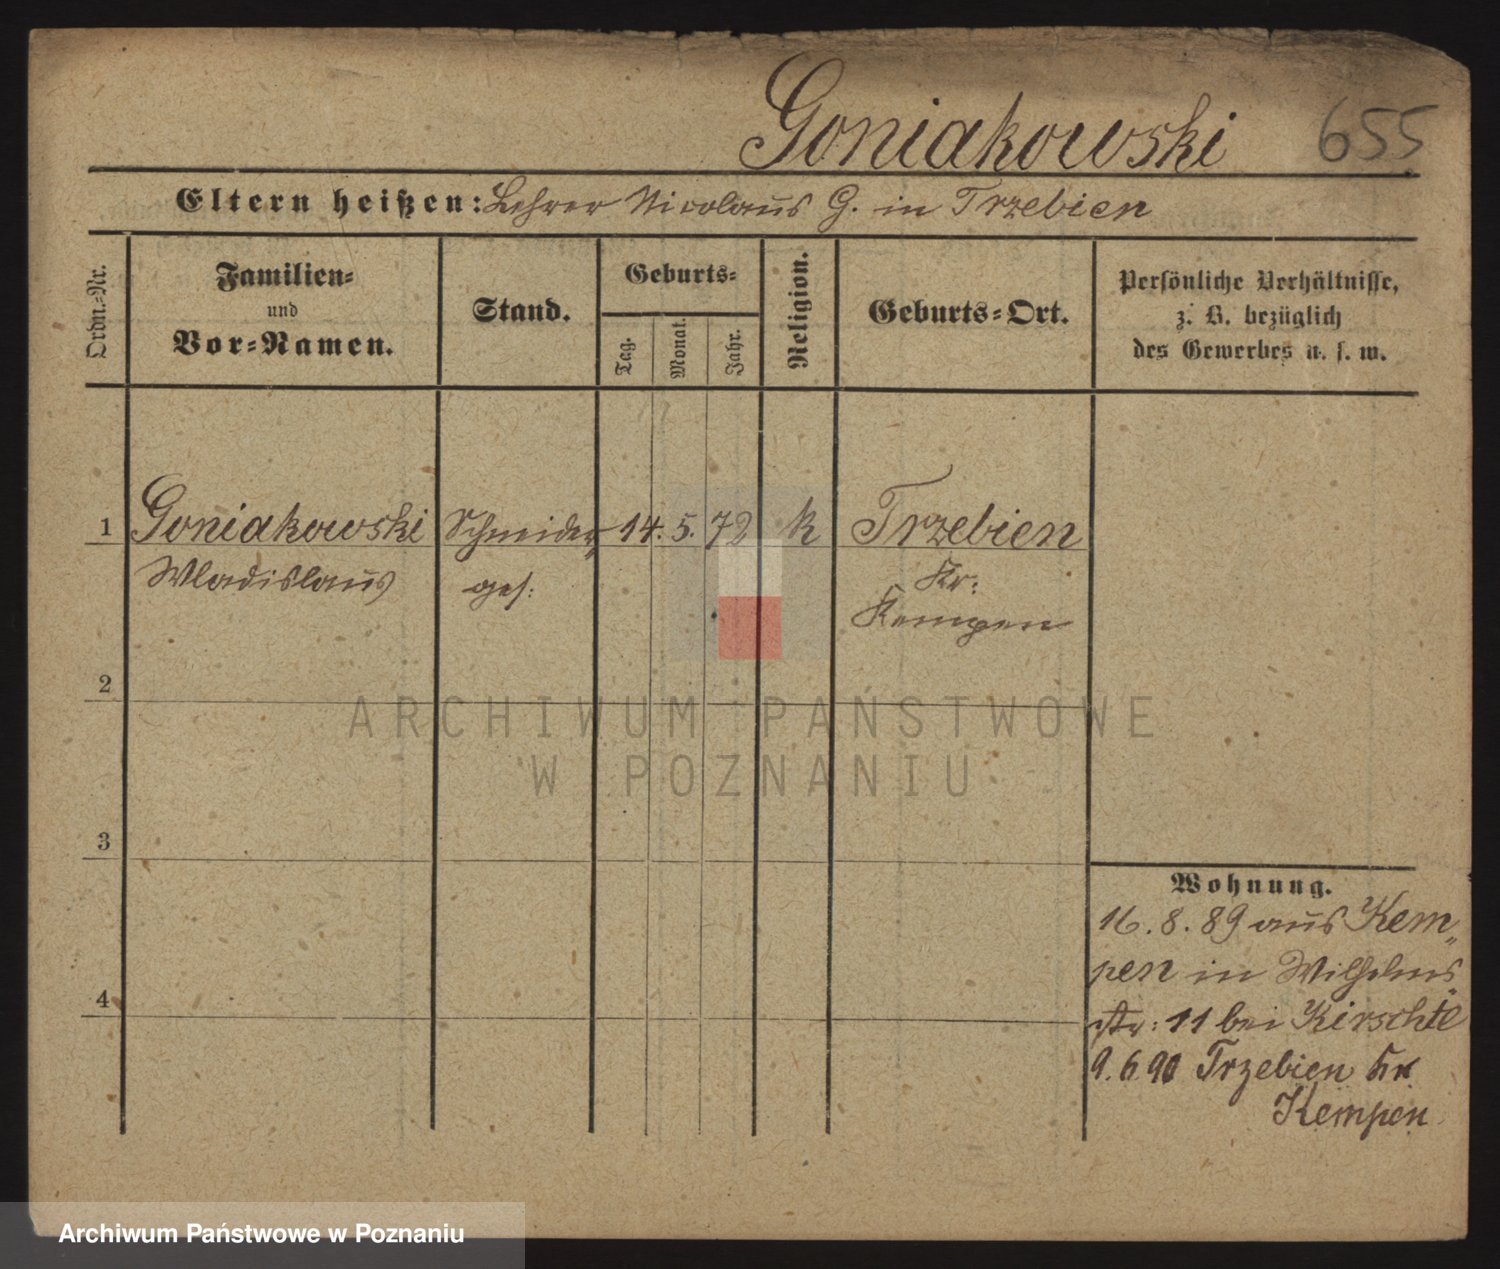 Goniakowski 655
Eltern heißen: Lehrer Nicolaus G. in Trzebien
Ordn.-Nr.
Familien-
und
Vor-Namen.
Stand.
Geburts-
Tag.
Monat.
Jahr.
Religion.
Geburts-Ort.
Persönliche Verhältnisse,
z. B. bezüglich
des Gewerbes u. s. w.
1 Goniakowski Schneider 14. 5. 72 k Trzebien
Wladislaus ges: Kr:
Kempen
2
3
4
Wohnung.
16. 8. 89 aus Kem-
pen in Wilhelms
str: 11 bei Kirschte
9. 6. 90 Trzebien Kr
Kempen
ARCHIWUM PAŃSTWOWE
W POZNANIU
Archiwum Państwowe w Poznaniu